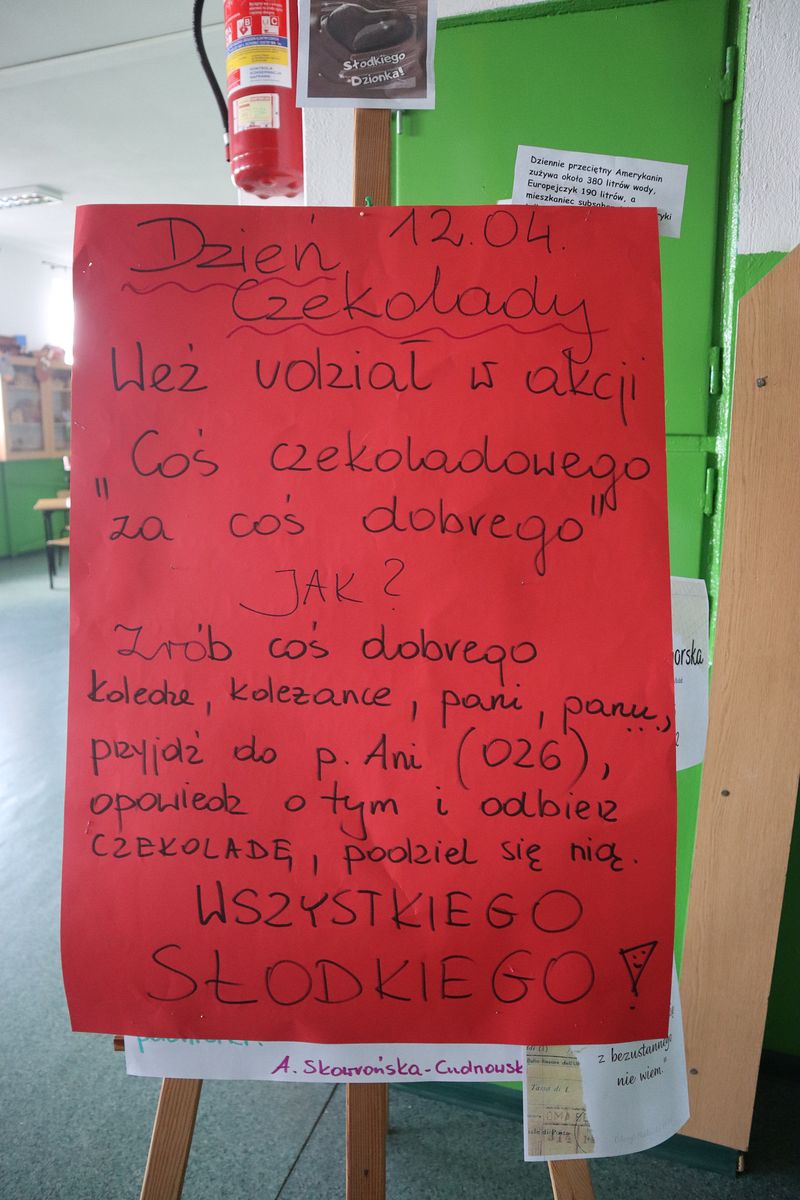 Słodkiego
Dzionka!
Dziennie przeciętny Amerykanin
zużywa około 380 litrów wody,
Europejczyk 190 litrów, a
mieszkaniec
Dzień 12.04.
Czekolady
Weź udział w akcji
"Coś czekoladowego
za coś dobrego"
JAK?
Zrób coś dobrego
koledze, koleżance, pani, panu...,
przyjdź do p. Ani (026),
opowiedz o tym i odbierz
CZEKOLADĘ, podziel się nią.
WSZYSTKIEGO
SŁODKIEGO!
A. Skowrońska-Cudnowsk
z bezustannego
nie wiem."